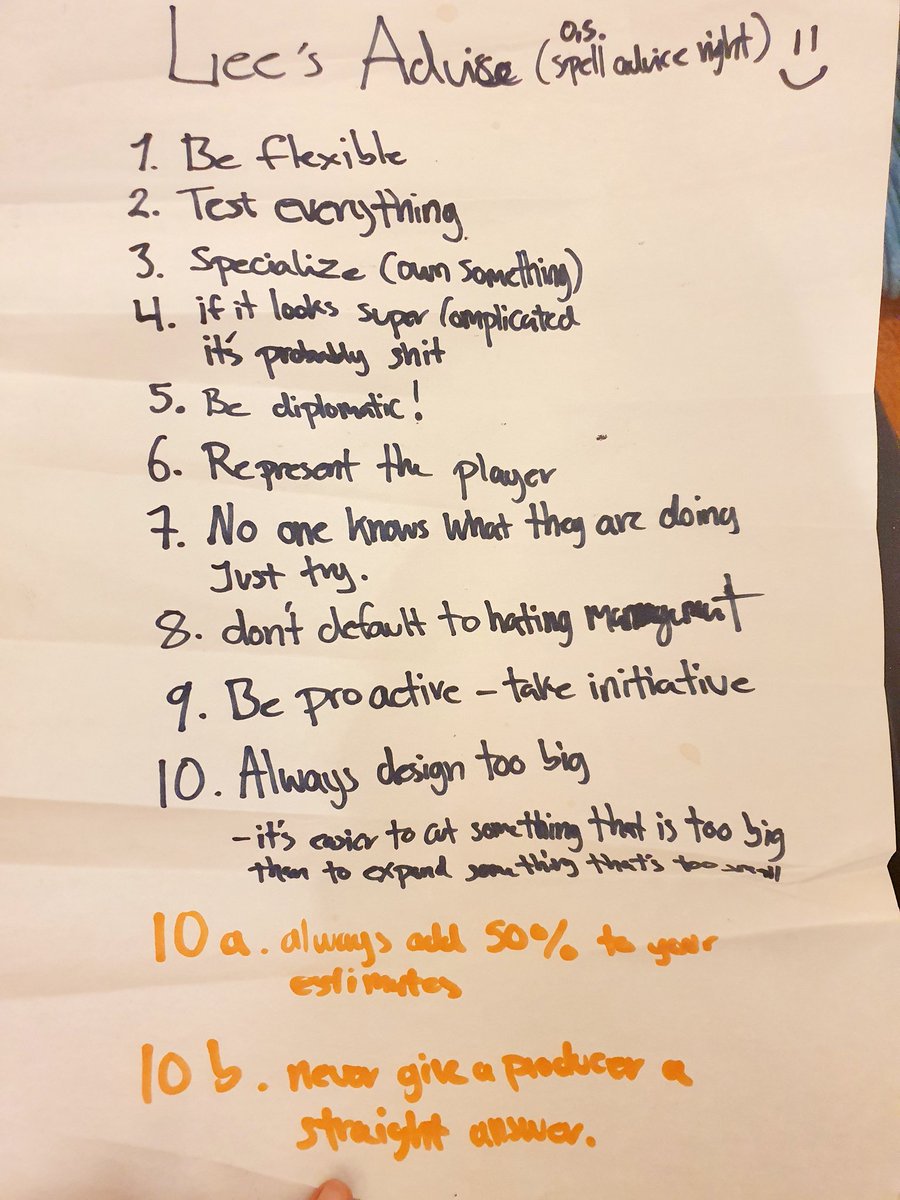 Lee's Advise (0.5. spell advice right)
1. Be flexible
2. Test everything
3. Specialize (own something)
4. if it looks super complicated
it's probably shit
5. Be diplomatic!
6. Represent the player
7. No one knows what they are doing
Just try.
8. don't default to hating management
9. Be proactive - take initiative
10. Always design too big
- it's easier to cut something that is too big
then to expend something that's too small
10 a. always add 50% to your
estimates
10 b. never give a producer a
straight answer.